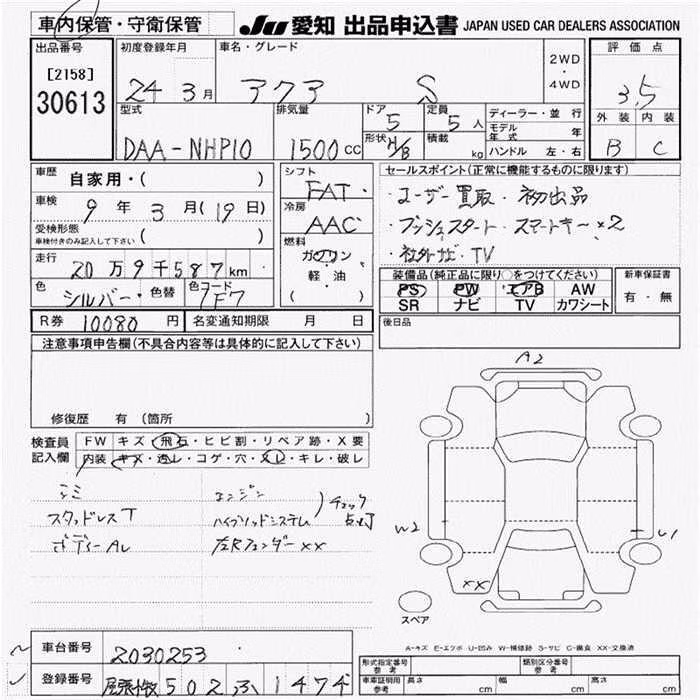 車内保管・守衛保管
JU 愛知 出品申込書 JAPAN USED CAR DEALERS ASSOCIATION
出品番号
[2158]
30613
初度登録年月
24 3月
車名・グレード
アクア S
2WD
・
4WD
評価点
3.5
外装 内装
B C
型式
DAA-NHP10
排気量
1500cc
ドア
5
形状
H/B
定員
5人
積載
kg
ディーラー・並行
モデル年式 年
ハンドル 左・右
車歴
自家用・( )
車検
9年3月(19日)
受検形態
車検付きのみ記入して下さい ( )
走行
20万9千587km
色
シルバー
色替
色コード
1F7
シフト
FAT
冷房
AAC
燃料
ガソリン
軽・油
( )
セールスポイント(正常に機能するものに限ります)
・ユーザー買取・初出品
・プッシュスタート・スマートキー×2
・社外ナビ・TV
装備品(純正品に限り○をつけてください)
PS PW エアB AW
SR ナビ TV カワシート
新車保証書
有・無
R券 10080円
名変通知期限 月 日
後日品
注意事項申告欄(不具合内容等は具体的に記入して下さい)
修復歴 有(箇所 )
検査員
記入欄
FW キズ・飛石・ヒビ割・リペア跡・X要
内装 キズ・コゲ・穴・スレ・キレ・破レ
スタッドレスT
ボディーAL
エンジン
ハイブリッドシステム
チェック
点灯
左Rフェンダーxx
A2
W2
U1
xx
スペア
A-キズ E-エクボ U-凹み W-補修跡 S-サビ C-腐食 XX-交換済
車台番号
2030253
登録番号
尾張小牧 502 ふ 1474
形式指定番号
参考
類別区分番号
参考
車庫証明用
参考
長さ cm
幅 cm
高さ cm